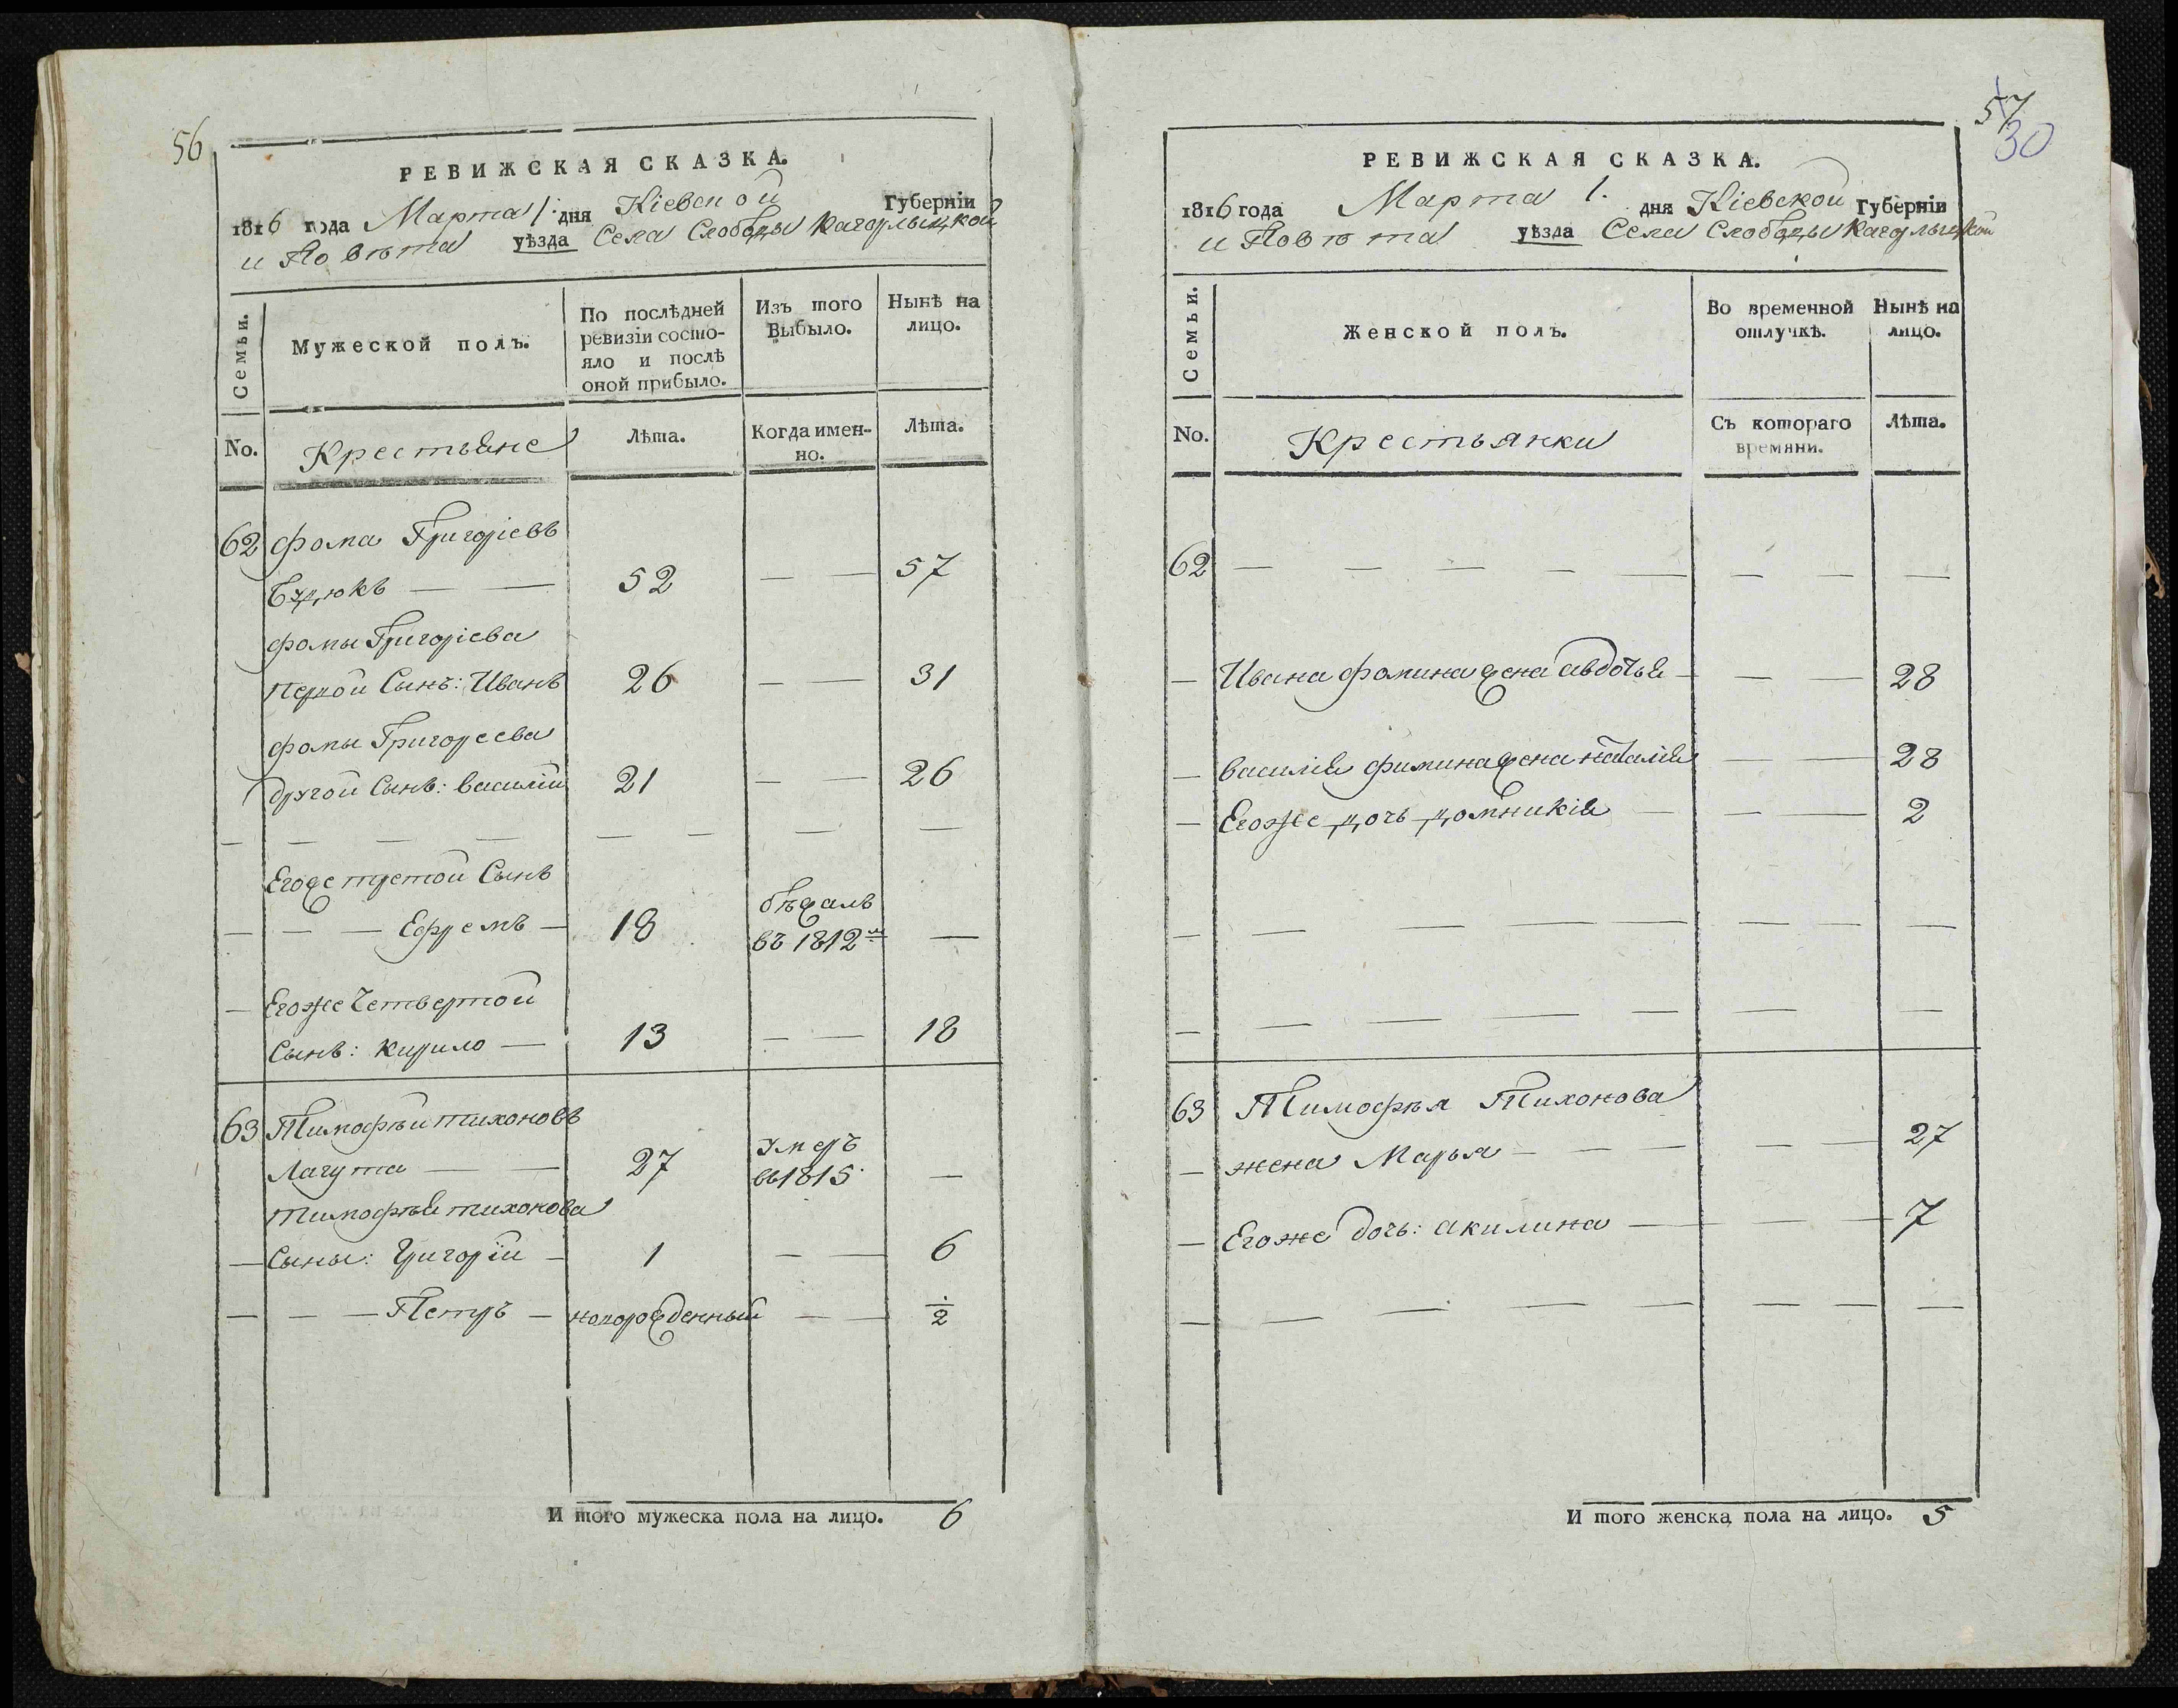 56
РЕВИЖСКАЯ СКАЗКА.
1816 года Марта 1. дня Кіевской Губерніи
и Повѣта уѣзда Села Слободы Кагарлыцкой
Семьи.
Мужеской полъ.
По послѣдней ревизіи состо-
яло и послѣ
оной прибыло.
Изъ того
Выбыло.
Нынѣ на
лицо.
No.
Крестьяне
Лѣта.
Когда имен-
но.
Лѣта.
62 фома Григоріевъ
Бздюкъ — — 52 — — 57
фомы Григоріева
первой Сынъ: Иванъ 26 — — 31
фомы Григореева
другой Сынъ: василій 21 — — 26
— — — — — — — —
Егоже третой Сынъ
— — — Ефремъ — 18 бѣжалъ
въ 1812м —
— Егоже Четвертой
Сынъ: кирило — 13 — — 18
63 Тимофѣй тихоновъ
Лагута — — 27 умеръ
въ 1815. —
тимофѣя тихонова
— Сыны: Григорій — 1 — — 6
— — — Петръ — новорожденный — — 1/2
И того мужеска пола на лицо. 6
57
30
РЕВИЖСКАЯ СКАЗКА.
1816 года Марта 1. дня Кіевской Губерніи
и Повѣта уѣзда Села Слободы Кагарлыцкой
Семьи.
Женской полъ.
Во временной
отлучкѣ.
Нынѣ на
лицо.
No.
Крестьянки
Съ котораго
времяни.
Лѣта.
62 — — — — — — — —
— Ивана фомина жена авдотья — — — 28
— василія фомина жена наталія — — 28
— Егоже дочь домникія — — — 2
— — — — — — — —
— — — — — — — —
63 Тимофѣя Тихонова
— жена Марья — — — — — 27
— Егоже дочь: акилина — — — 7
— — — — — — — —
И того женска пола на лицо. 5